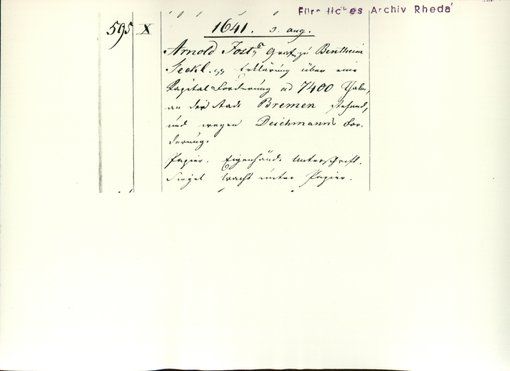 Fürstliches Archiv Rheda
595 X 1641. 3. aug.
Arnold Jost Graf zu Bentheim
Teckl. Erklärung über eine
Kapital-Forderung ad 7400 Thaler,
an der Stadt Bremen stehend,
und wegen Deichmanns For-
derung.
Papier. Eigenhänd. Unterschrift.
Siegel Wachs unter Papier.